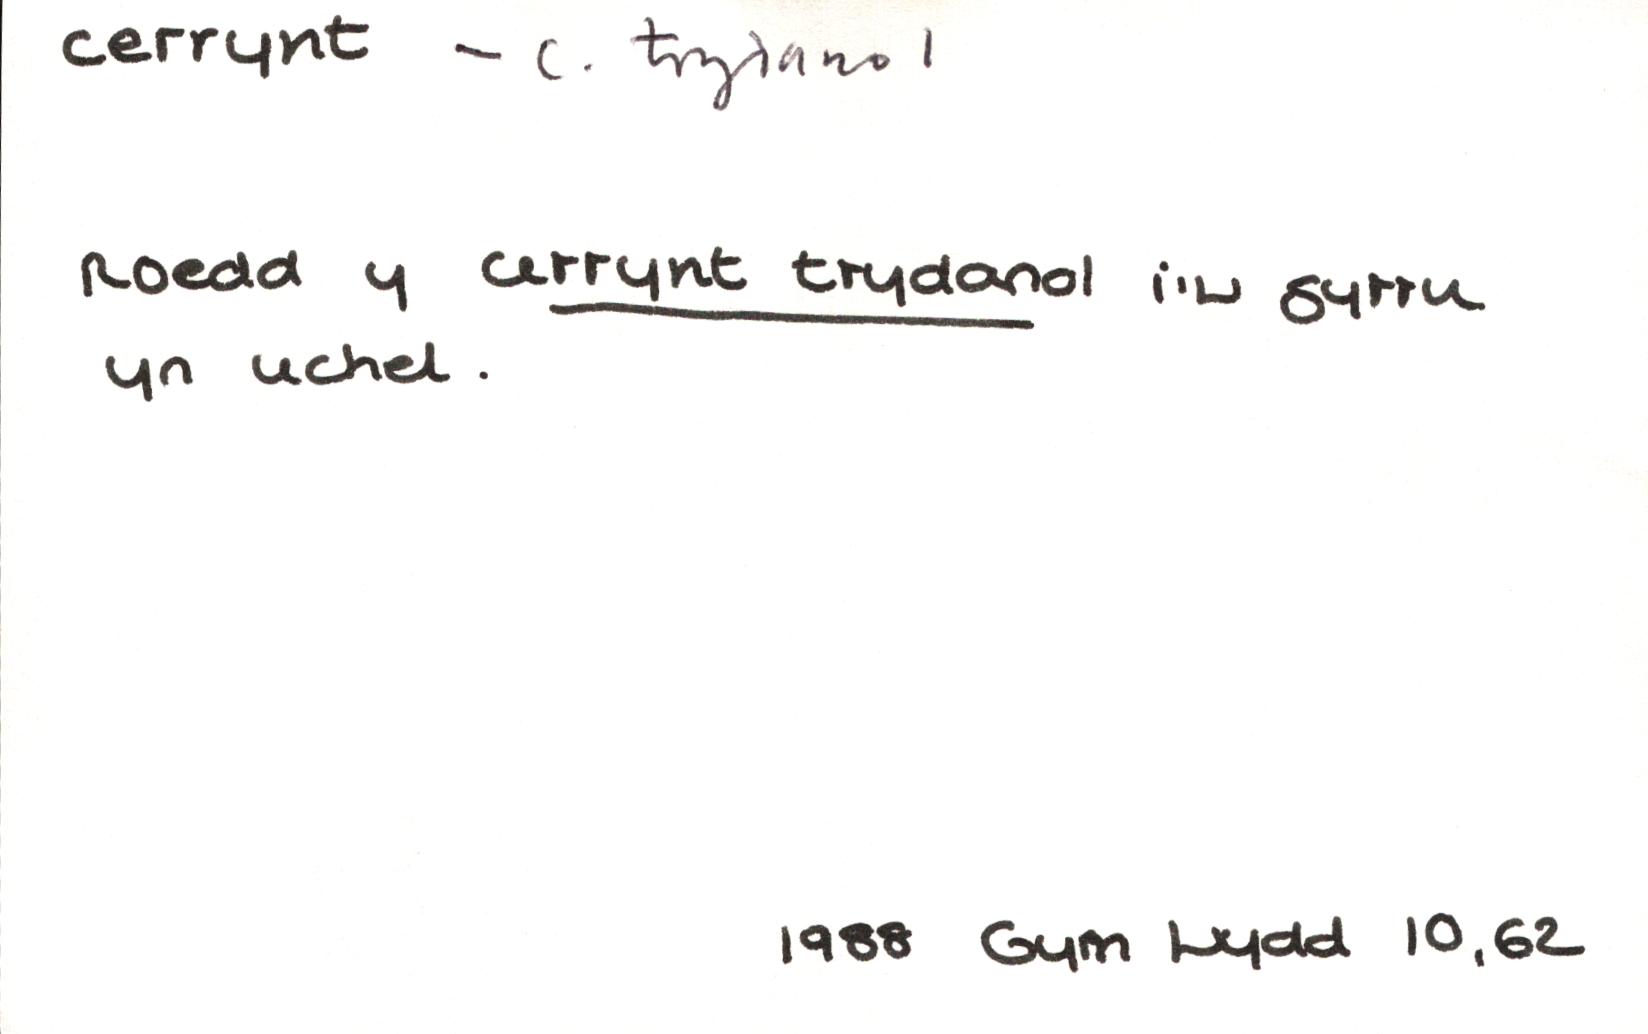 cerrynt – c. trydanol
Roedd y cerrynt trydanol i'w gyrru
yn uchel.
1988 Gym Wydd 10, 62